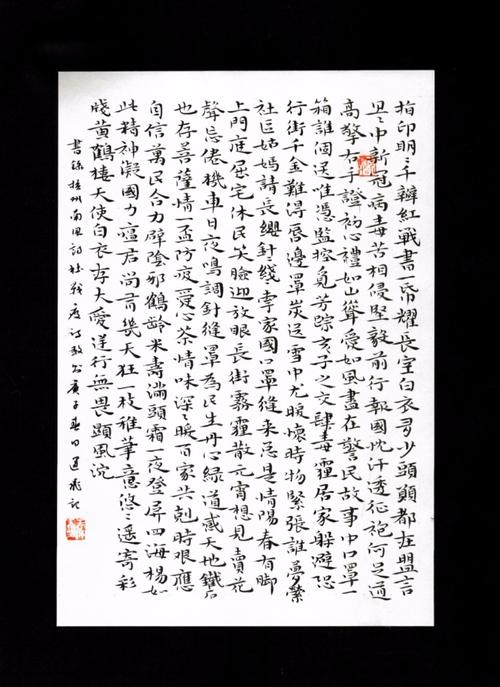 指印明明千瓣紅戰書一帋耀長空白衣多少頭顱都在盟言
裡中新冠病毒苦相侵堅毅前行報國忱汗透征袍何足道
高擎右手證初心禮如山聳愛如風盡在警民故事中口罩一
箱誰個送唯憑監控覓芳踪亥子之交肆毒霾居家躲避恐
行街千金難得唇邊罩炭送雪中尤暖懷時物緊張誰夢縈
社區姑媽請長纓針針綫綫李家國口罩縫來總是情陽春有脚
上門庭屈宅休民笑臉迎放眼長街霧霾散元宵想見賣花
聲忘倦機車日夜鳴調針縫罩為民生丹心綠道感天地鐵石
也存菩薩情一盃防疫愛心茶情味深深暖百家共剋時艱應
自信萬民合力辟陰邪鶴齡米壽滿頭霜一夜登屏四海楊如
此精神凝國力瘟君尚有幾天狂一枝雅筆意悠悠遙寄彩
牋黃鶴樓天使白衣存大愛逆行無畏顯風流
書錄 州南風詩社戰疫詩 庚子春日 記